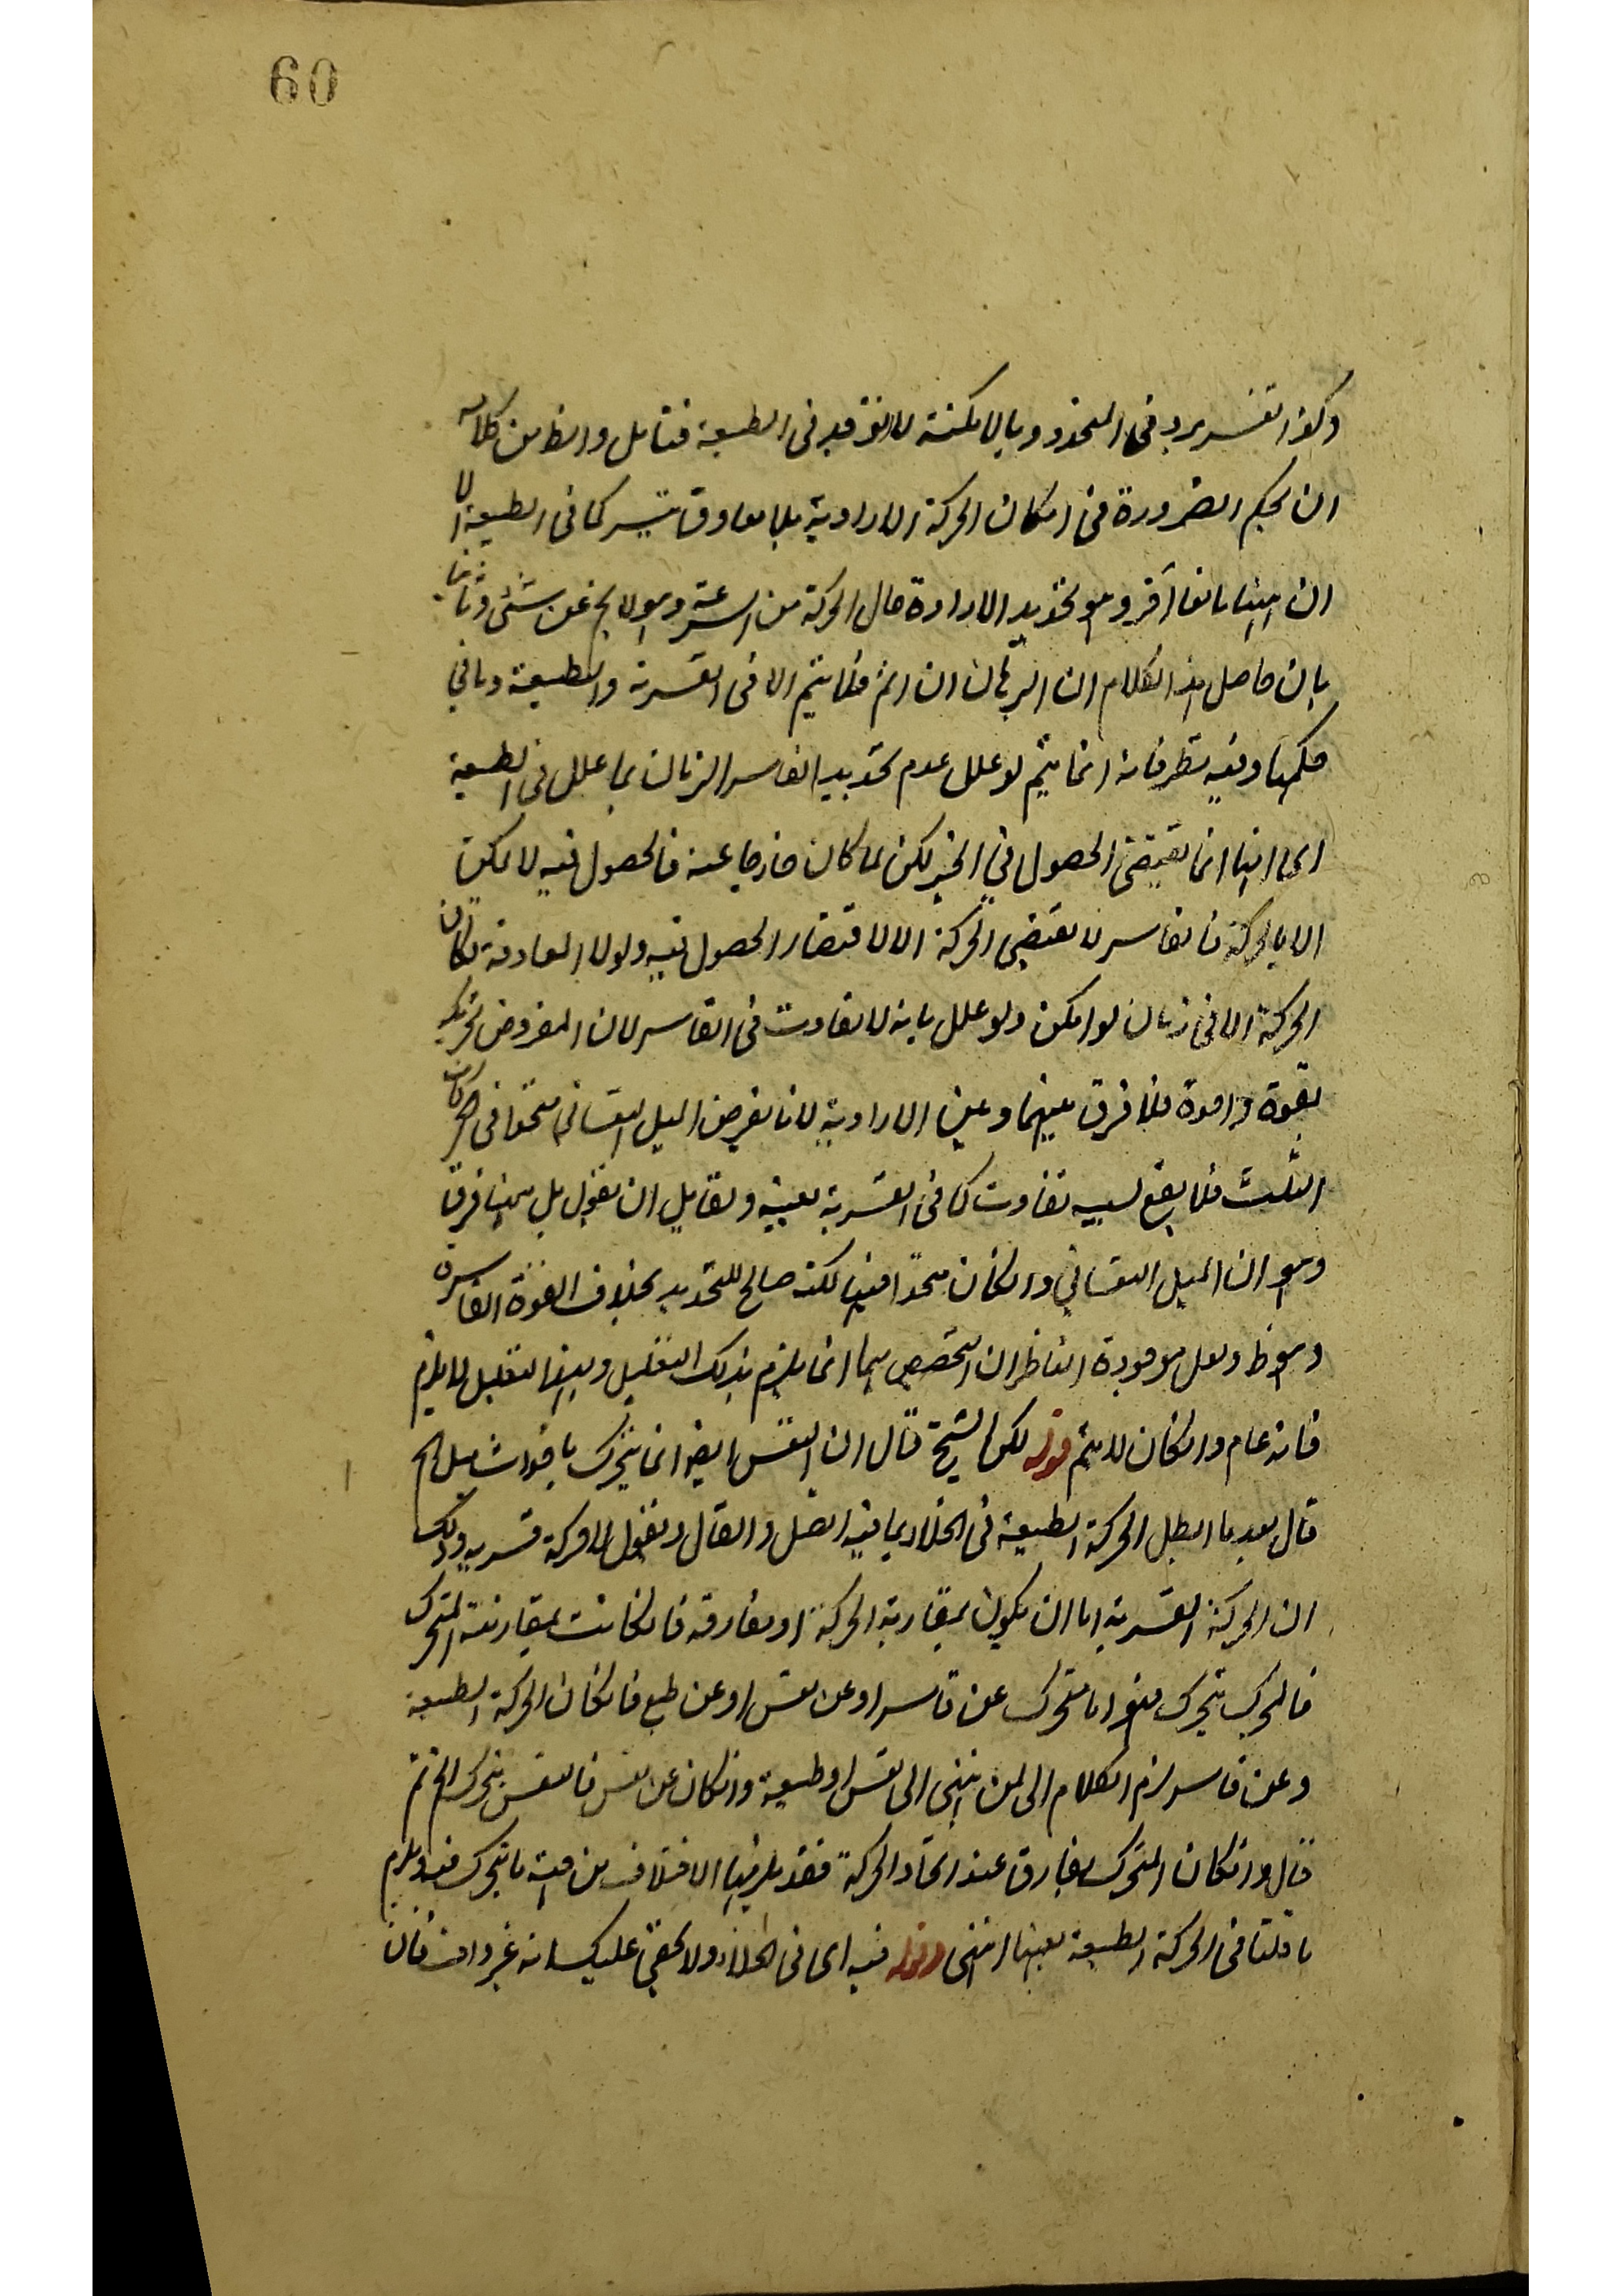 60
وكذا تفسر يرد في المحذور وبالامكنة لا لتوقد في الطبيعة فتامل والظ من كلامه
ان الحكم الضرورة في امكان الحركة الارادية بلا معاوق متيسر كما في الطبيعة لا
ان ههنا مانعا آخر وهو تحديد الارادة حال الحركة من السرعة وهو لا يخ عن شئ وثانيا
بان حاصل هذا الكلام ان البرهان ان تم فلا يتم الا في القسرية والطبيعة وما في
حكمها وفيه نظر فانه انما يتم لو علل عدم تحديد القاسر الزمان بما علل في الطبيعة
اى انها انما تقتضى الحصول في الحيز لكن لما كان خارجا عنه فالحصول فيه لا يمكن
الا بالحركة فالقاسر لا يقتضى الحركة الا لاقتضاء الحصول فيه ولولا المعاوقة لكان
الحركة الا في زمان لو امكن ولو علل بانه لا تفاوت في القاسر لان المفروض تحريكه
بقوة واحدة فلا فرق بينها وبين الارادية لانا نفرض الميل النفسانى متحدا في الحركات
الثلث فلا يقع لسببه تفاوت كما في القسرية بعينه ولقايل ان يقول بل بينها فرق
وهو ان الميل النفساني وان كان متحدا فيها لكنه صالح للتحديد بخلاف القوة القاسرة
وهو ظ ولعل الناظر ان التخصيص بهما انما يلزم بذلك التعليل وبهذا التعليل لا يلزم
فانه عام وان كان لا يتم قوله لكن الشيخ قال ان النفس ايضا انما يتحرك الخ
قال بعد ما ابطل الحركة الطبيعة في الخلاء بما فيه القيل والقال ونقول لا حركة قسرية وذلك
ان الحركة القسرية اما ان يكون بمقارنة الحركة او مفارقة فان كانت بمقارنة المتحرك
فالمحرك يتحرك فهو اما متحرك عن قاسر او عن نفس او عن طبع فان كان الحركة الطبيعة
وعن قاسر لزم الكلام الى ان ينتهى الى نفس او طبيعة وان كان عن نفس فالنفس يتحرك الخ ثم
قال وان كان المتحرك يفارق عند اتحاد الحركة فقد يلزمها الاختلاف من جهة ما يتحرك فيه ويلزم
ما قلنا في الحركة الطبيعة بعينها انتهى قوله فيه اى في الخلاء ولا يخفى عليك انه غير واف فان